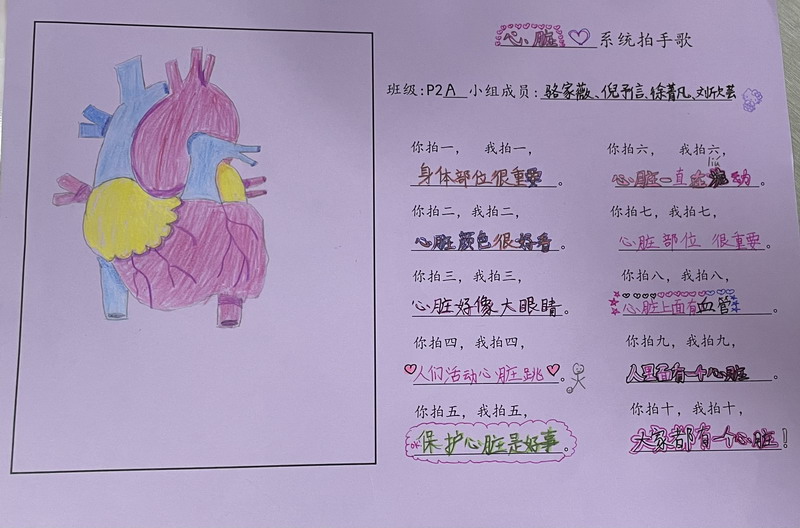 心脏系统拍手歌
班级:P2A 小组成员:骆家薇、倪予言、徐菁凡、刘欣芸
你拍一，我拍一，
身体部位很重要。
你拍二，我拍二，
心脏颜色很好看。
你拍三，我拍三，
心脏好像大眼睛。
你拍四，我拍四，
人们活动心脏跳。
你拍五，我拍五，
保护心脏是好事。
你拍六，我拍六，
liú
心脏一直在流动。
你拍七，我拍七，
心脏部位很重要。
你拍八，我拍八，
心脏上面有血管。
你拍九，我拍九，
人里面有一个心脏。
你拍十，我拍十，
大家都有一个心脏！